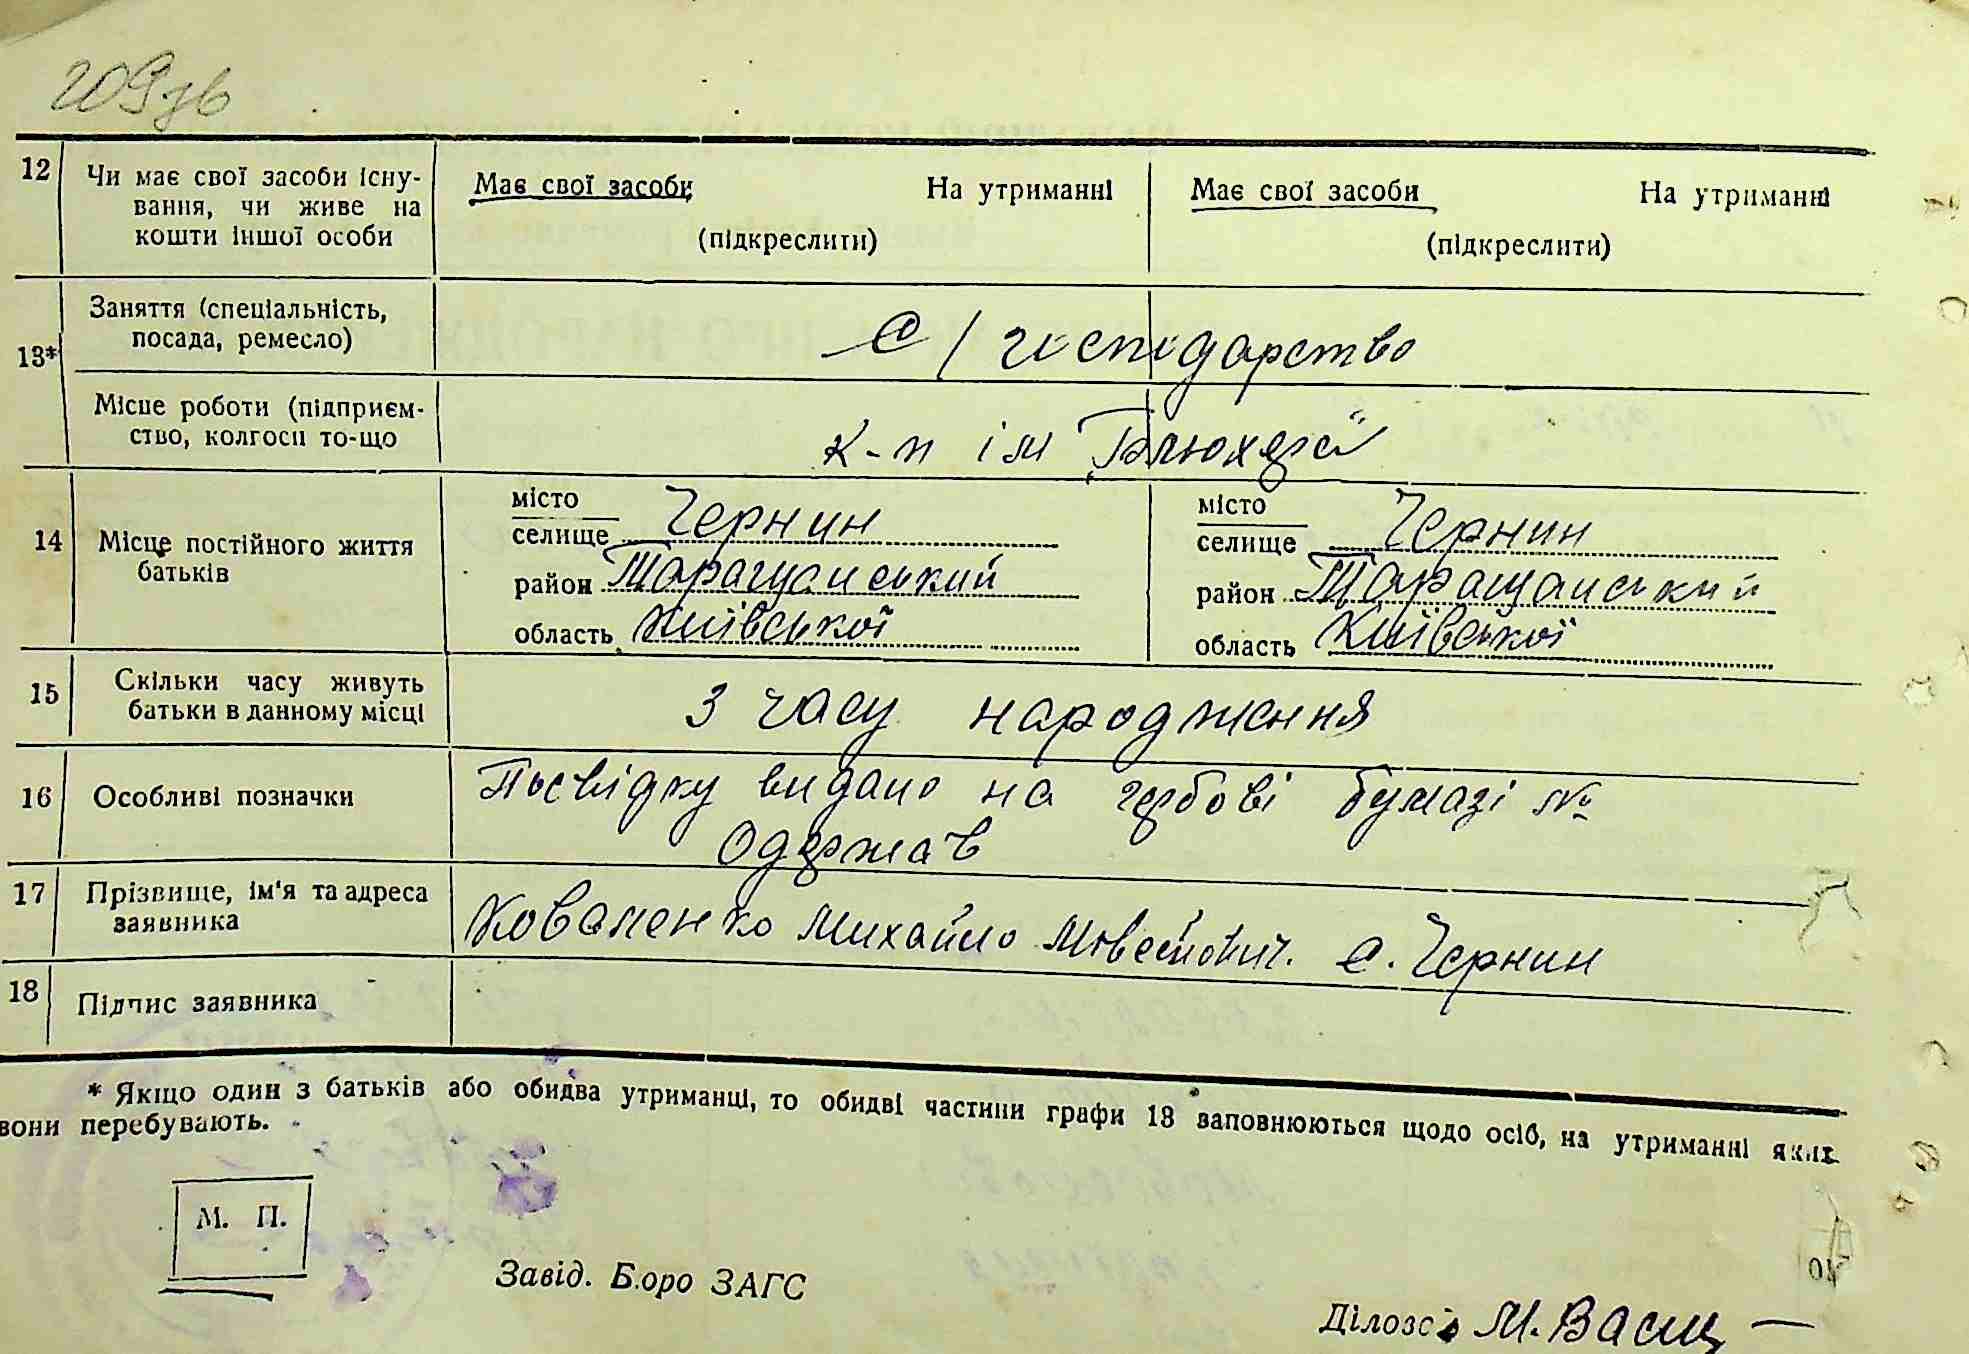 209зв
12 Чи має свої засоби існу- Має свої засоби На утриманні Має свої засоби На утриманні
вання, чи живе на
кошти іншої особи (підкреслити) (підкреслити)
Заняття (спеціальність,
13* посада, ремесло) С/господарство
Місце роботи (підприєм-
ство, колгосп то-що К-п ім „Блюхера"
місто місто
14 Місце постійного життя селище Чернин селище Чернин
батьків район Таращанський район Таращанський
область Київської область Київської
15 Скільки часу живуть
батьки в данному місці З часу народження
16 Особливі позначки Посвідку видано на гербові бумазі №
Одержав
17 Прізвище, ім'я та адреса
заявника Коваленко Михайло с. Чернин
18 Підпис заявника
* Якщо один з батьків або обидва утриманці, то обидві частини графи 13 заповнюються щодо осіб, на утриманні яких
вони перебувають.
М. П.
Завід. Бюро ЗАГС
Діловод М.